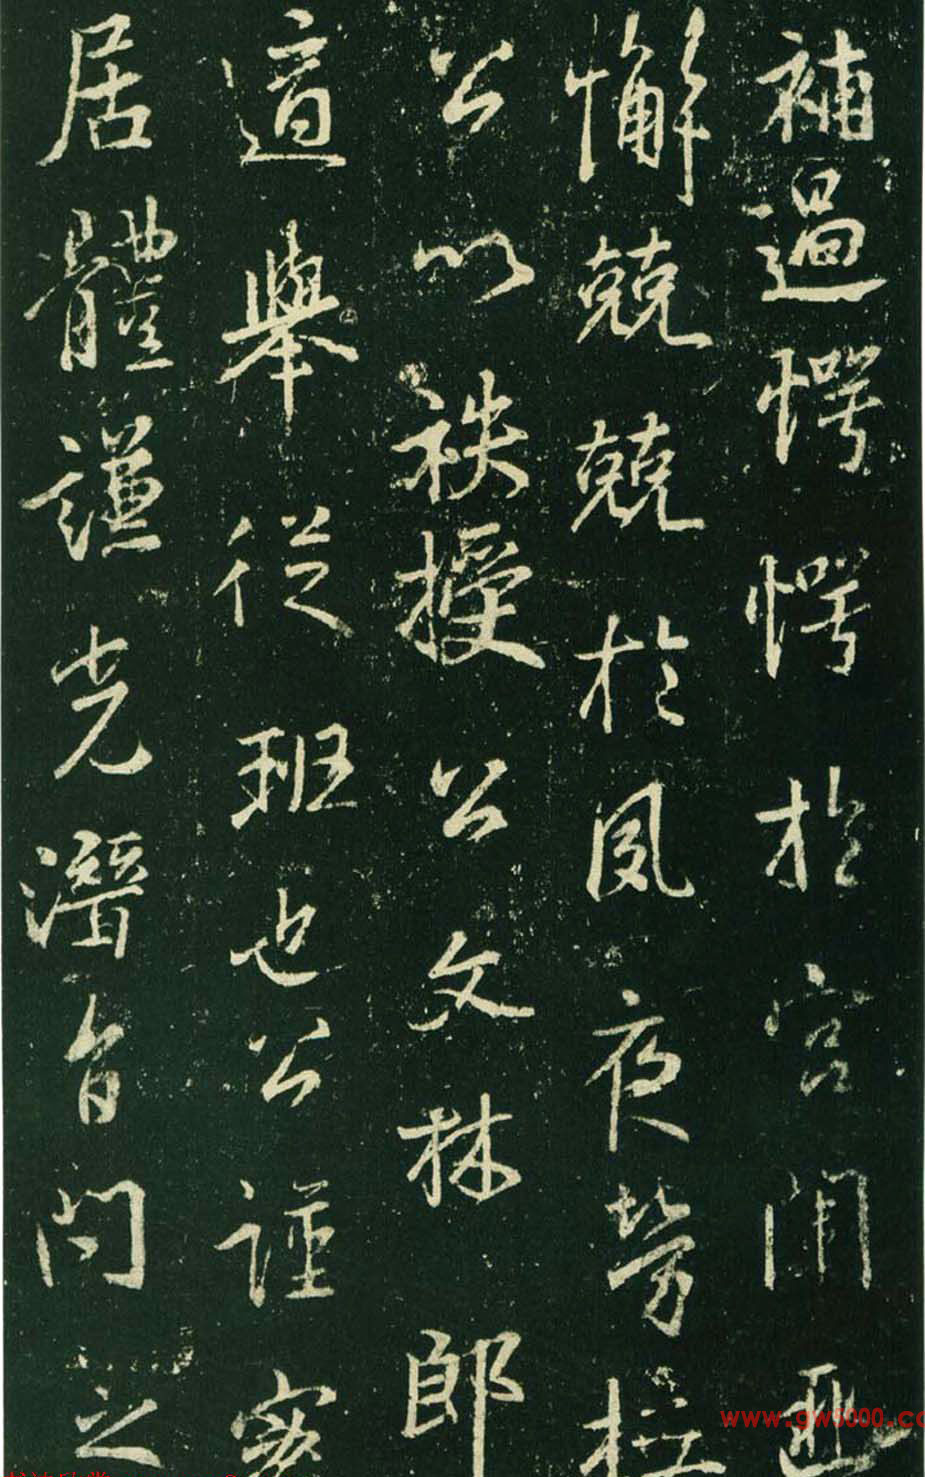 補過愕愕於宮闈匪
懈兢兢於夙夜勞
公以秩授公文林郎
道舉從班也公謹密
居體謙光潛旨問之
www.gw5000.co